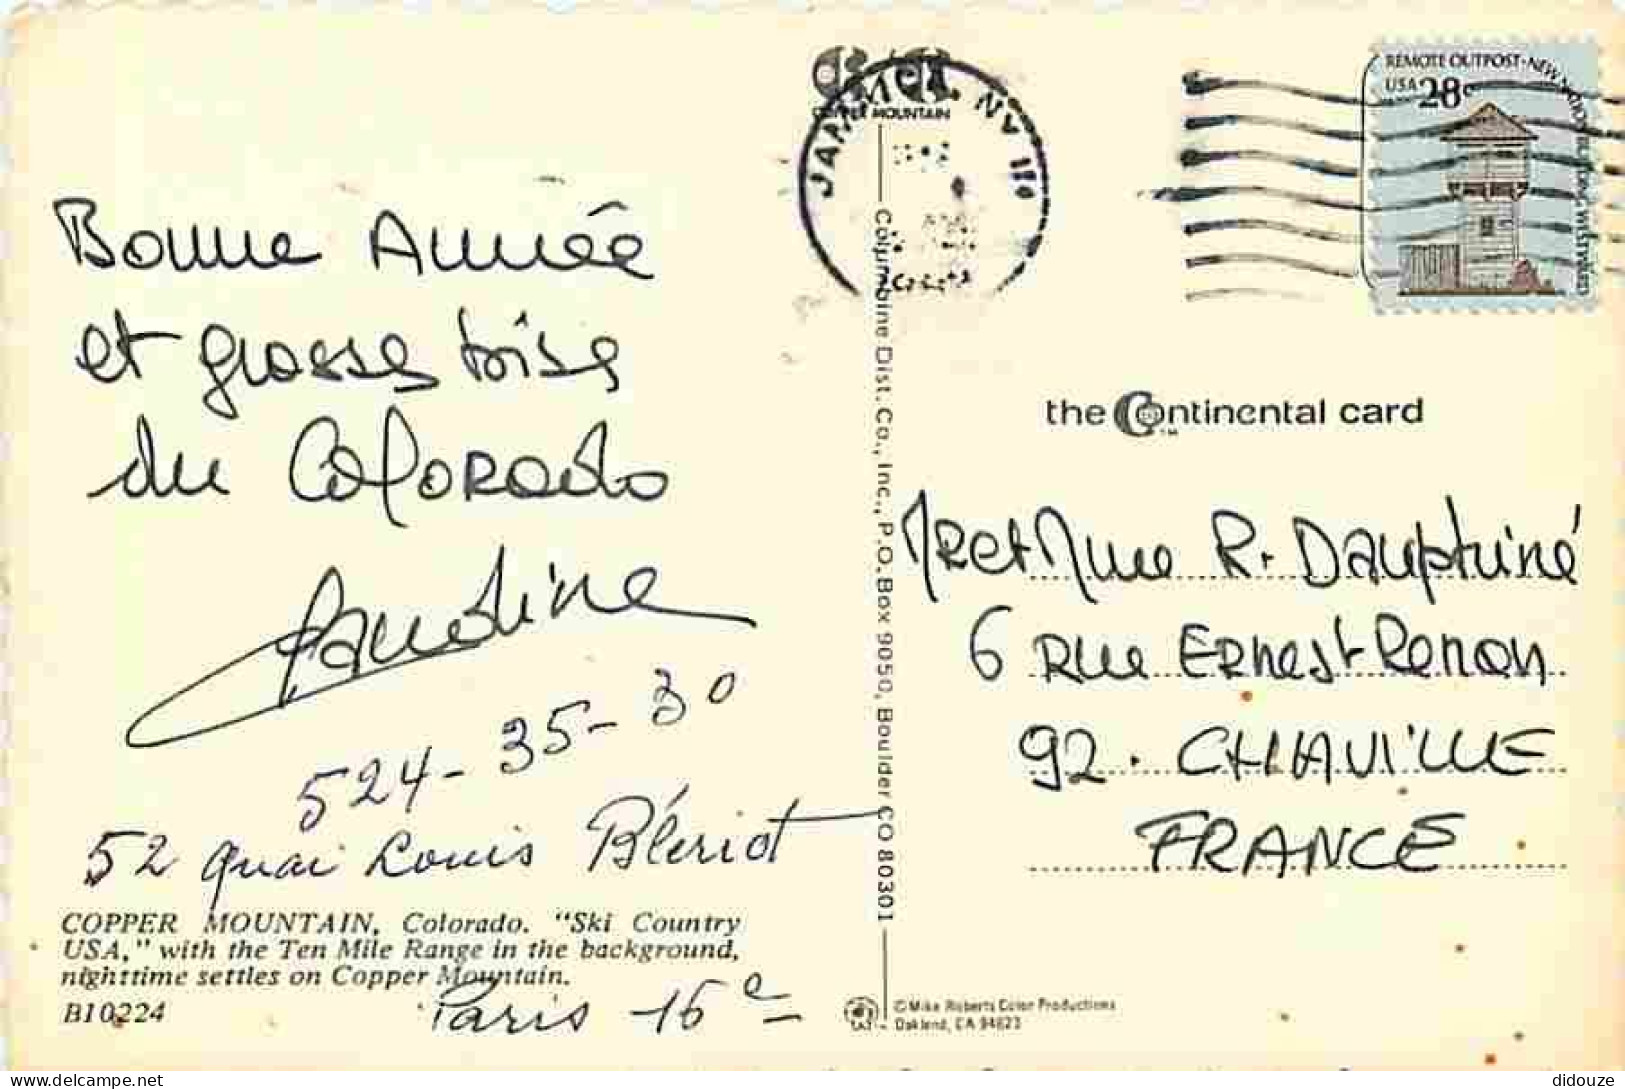 Bonne Année
et grosse bise
du Colorado
524-35-30
52 quai Louis Blériot
COPPER MOUNTAIN, Colorado. "Ski Country
USA," with the Ten Mile Range in the background,
nighttime settles on Copper Mountain.
B10224
Paris 16e
COPPER MOUNTAIN
JAMAICA, NY 110
Columbine Dist. Co., Inc., P.O. Box 9050, Boulder CO 80301
REMOTE OUTPOST·NEW NATION BUILDING WESTWARD
USA 28c
the Continental card
Mr et Mme R. Dauphiné
6 Rue Ernest Renan
92. CHAVILLE
FRANCE
©Mike Roberts Color Productions
Oakland, CA 94623
didouze